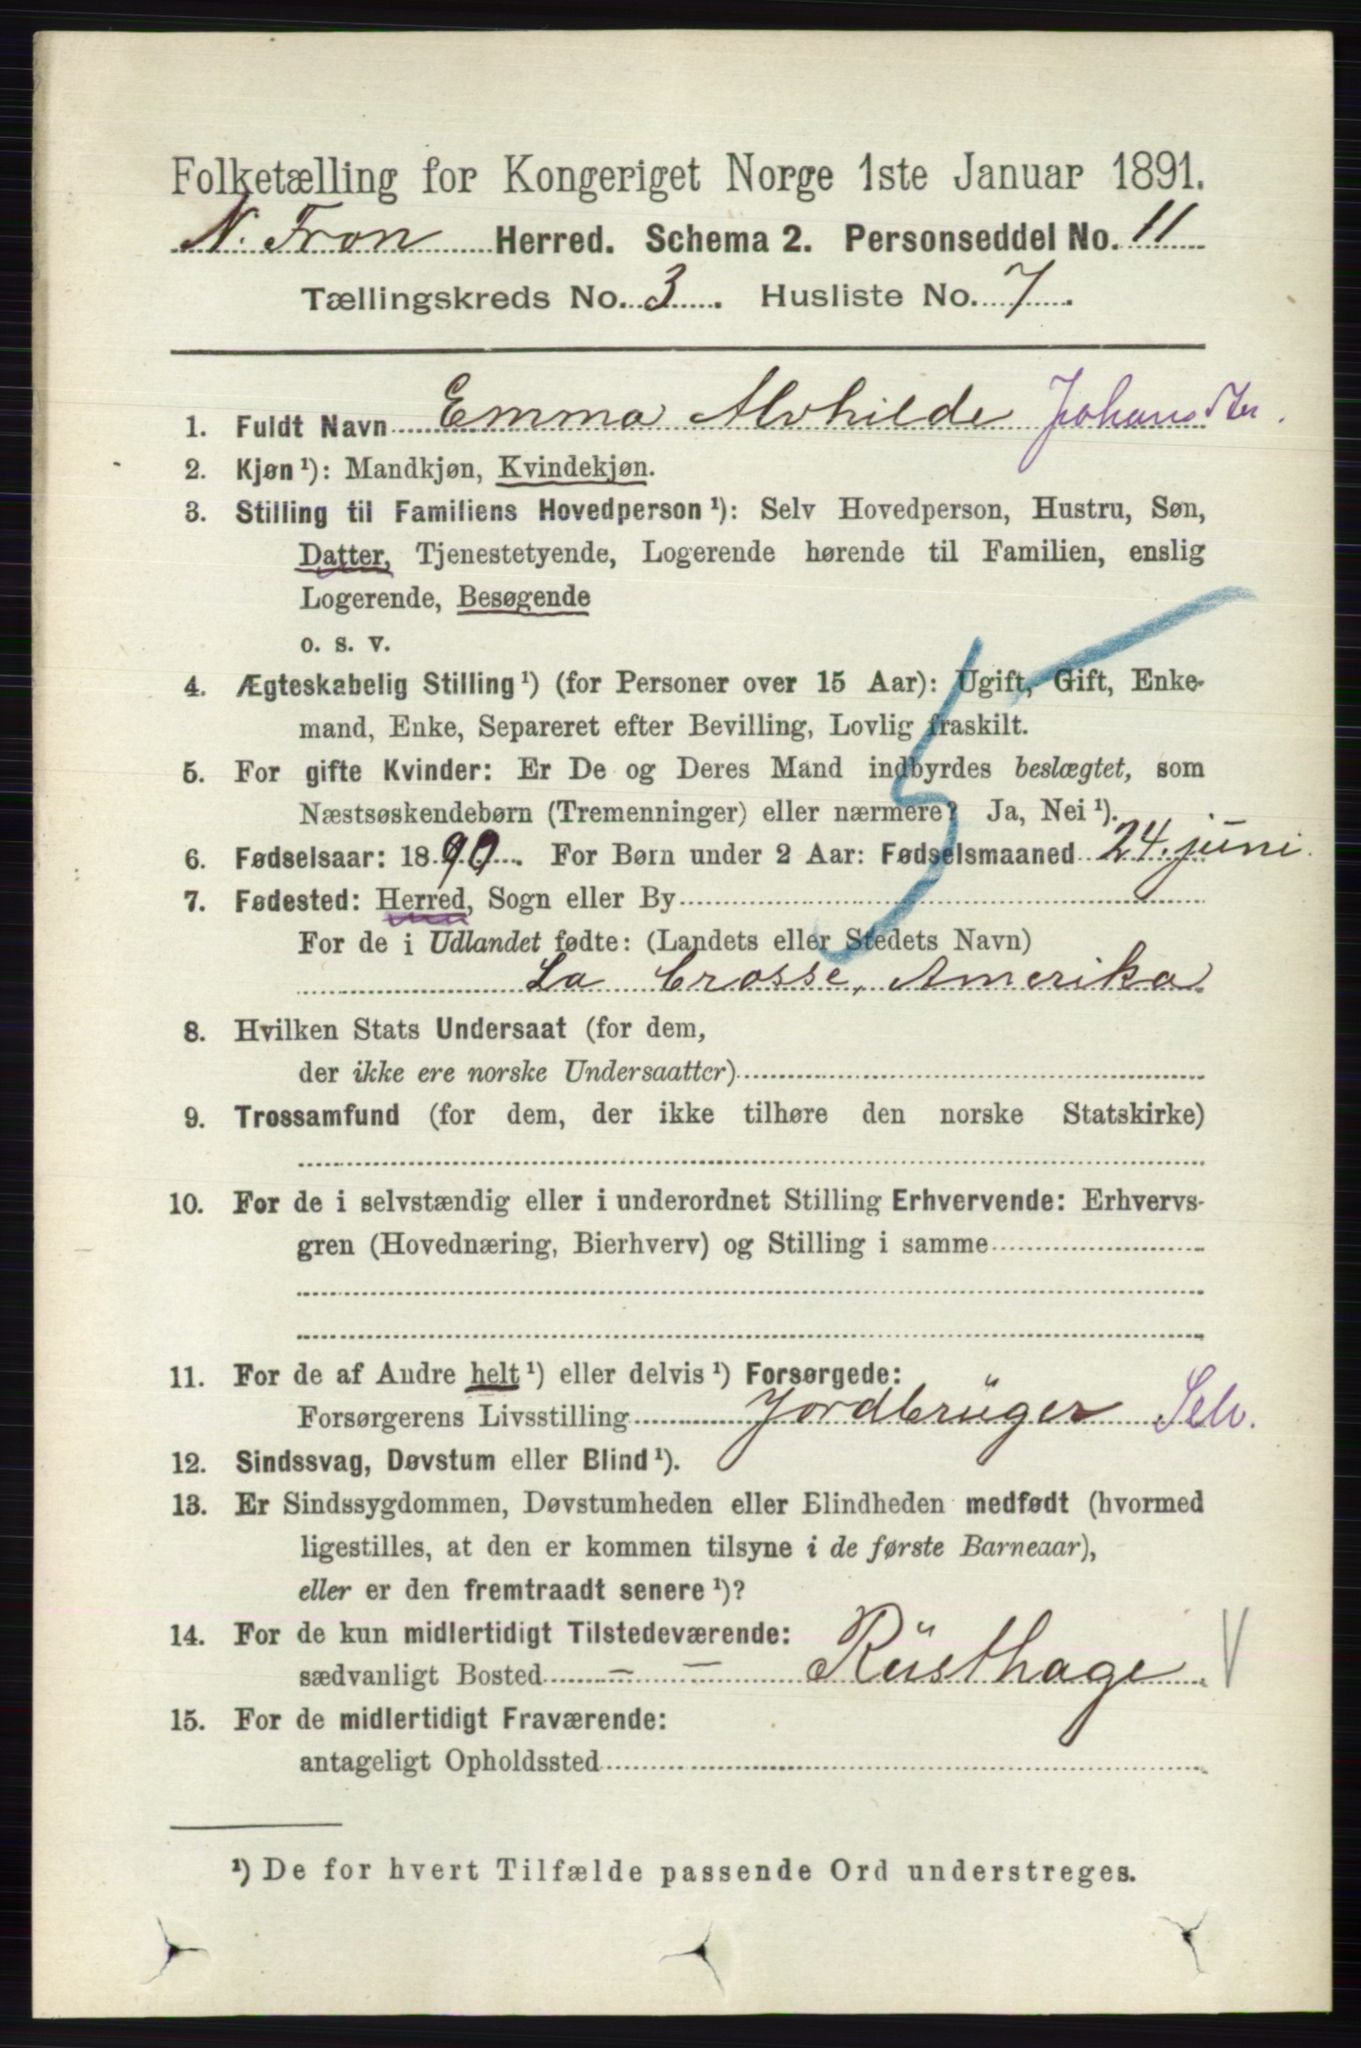 Folketælling for Kongeriget Norge 1ste Januar 1891.
N. Fron Herred. Schema 2. Personseddel No. 11
Tællingskreds No. 3. Husliste No. 7.
1. Fuldt Navn Emma Alvhilde Johansdter.
2. Kjøn ¹): Mandkjøn, Kvindekjøn.
3. Stilling til Familiens Hovedperson ¹): Selv Hovedperson, Hustru, Søn,
Datter, Tjenestetyende, Logerende hørende til Familien, enslig
Logerende, Besøgende
o. s. v.
4. Ægteskabelig Stilling ¹) (for Personer over 15 Aar): Ugift, Gift, Enke-
mand, Enke, Separeret efter Bevilling, Lovlig fraskilt.
5. For gifte Kvinder: Er De og Deres Mand indbyrdes beslægtet, som
Næstsøskendebørn (Tremenninger) eller nærmere? Ja, Nei ¹).
6. Fødselsaar: 1890. For Børn under 2 Aar: Fødselsmaaned 24. juni.
7. Fødested: Herred, Sogn eller By
For de i Udlandet fødte: (Landets eller Stedets Navn)
La Crosse, Amerika
8. Hvilken Stats Undersaat (for dem,
der ikke ere norske Undersaatter)
9. Trossamfund (for dem, der ikke tilhøre den norske Statskirke)
10. For de i selvstændig eller i underordnet Stilling Erhvervende: Erhvervs-
gren (Hovednæring, Bierhverv) og Stilling i samme
11. For de af Andre helt ¹) eller delvis ¹) Forsørgede:
Forsørgerens Livsstilling Jordbrüger Selv.
12. Sindssvag, Døvstum eller Blind ¹).
13. Er Sindssygdommen, Døvstumheden eller Blindheden medfødt (hvormed
ligestilles, at den er kommen tilsyne i de første Barneaar),
eller er den fremtraadt senere ¹)?
14. For de kun midlertidigt Tilstedeværende:
sædvanligt Bosted - - Rüsthage V
15. For de midlertidigt Fraværende:
antageligt Opholdssted
¹) De for hvert Tilfælde passende Ord understreges.